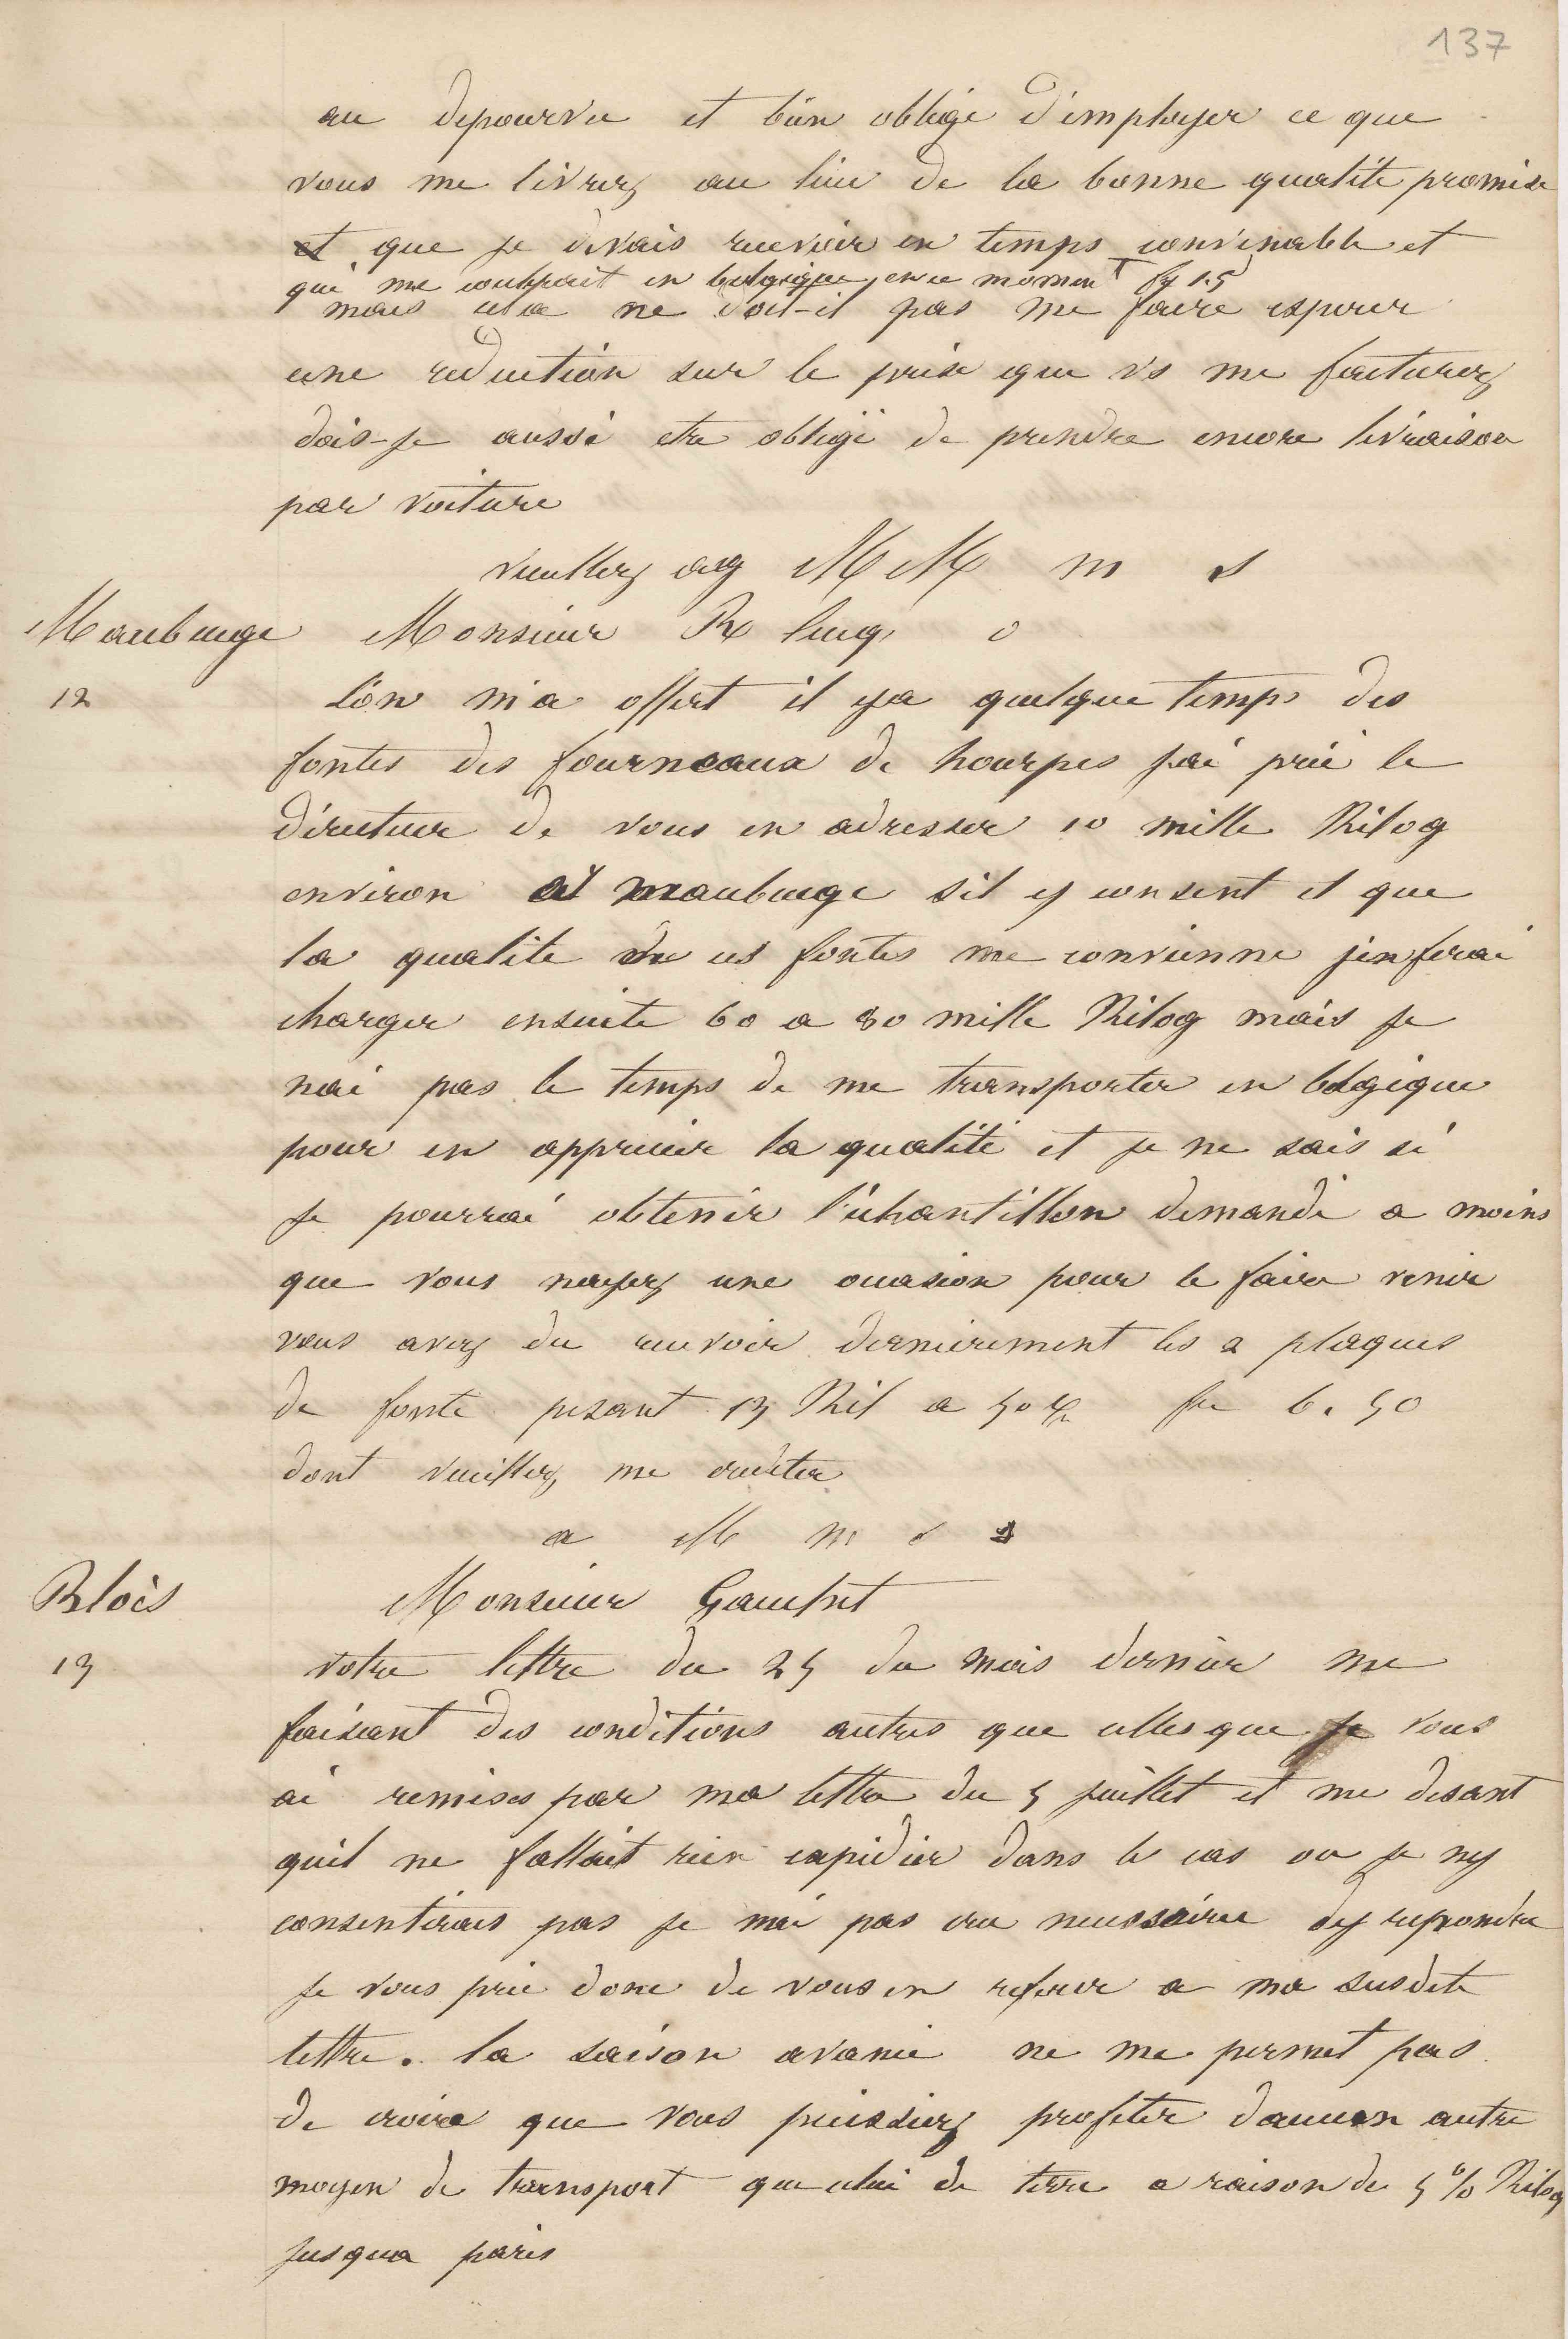 137
au depourvu et bien obligé d'employer ce que
vous me livrez au lieu de la bonne qualité promise
et que je devais recevoir en temps convenable et
qui me coulerait en belgique en ce moment fr 15
mais cela ne doit-il pas me faire esperer
une reduction sur le prix que vs me facturez
dois-je aussi etre obligé de prendre encore livraison
par voiture
veuillez ag MM m s
Maubeuge Monsieur
12 L'on m'a offert il ya quelque temps des
fontes des fourneaux de hourpes jai prié le
directeur de vous en adresser 10 mille Kilog
environ a maubeuge sil y consent et que
la qualite de ces fontes me convienne jen ferai
charger ensuite 60 a 80 mille Kilog mais je
nai pas le temps de me transporter en belgique
pour en apprecier la qualité et je ne sais si
je pourrai obtenir l'echantillon demandé a moins
que vous nayez une occasion pour le faire venir
vous avez du recevoir dernierement les 2 plaques
de fonte pesant 13 Kil a 50 fr 6.50
dont veuillez me crediter
a M m s s
Blois Monsieur
13 votre lettre du 25 du mois dernier me
faisant des conditions autres que celles que je vous
ai remises par ma lettre du 5 juillet et me disant
quil ne fallait rien expidier dans le cas ou je ny
consentirais pas je nai pas cru necessaire dy repondre
je vous prie donc de vous en referer a ma susdite
lettre. la saison avancée ne me permet pas
de croire que vous puissiez profiter daucun autre
moyen de transport que celui de terre a raison de 5 % Kilog
jusqua paris